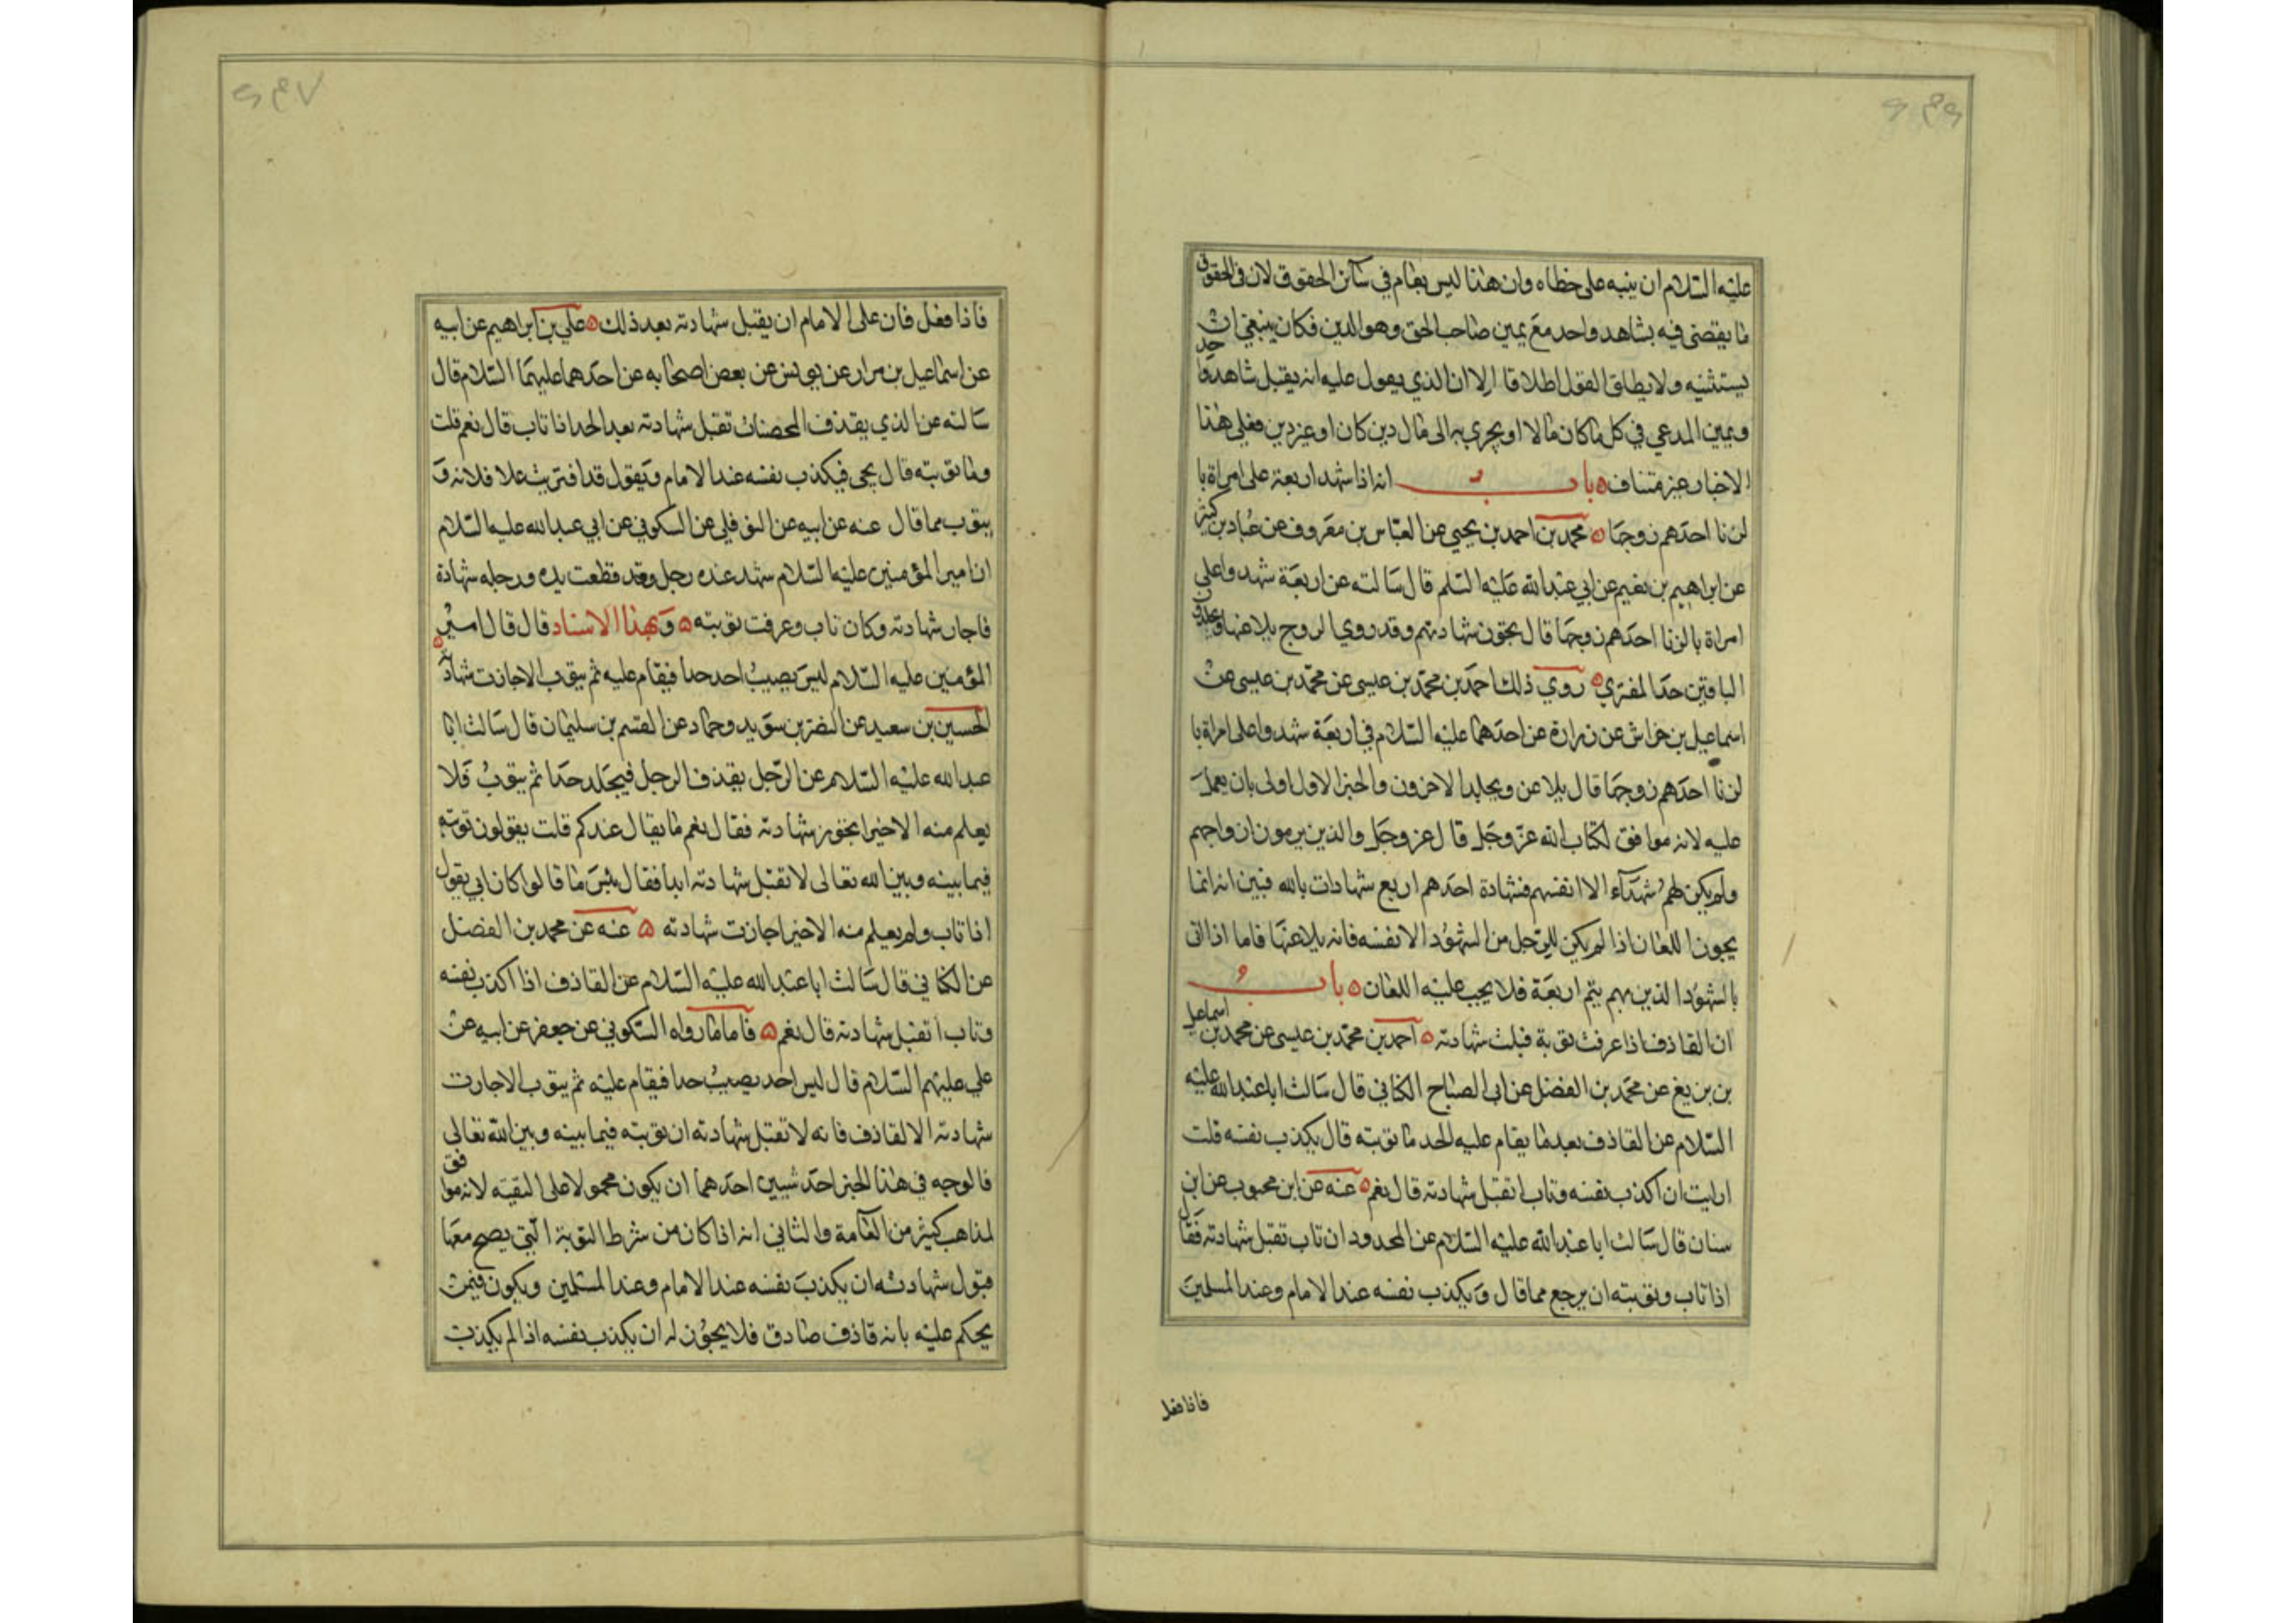 ۶۴۶
عليه السلام ان ينبه على خطاه وان هذا ليس بعام في سائر الحقوق لان في الحقوق
ما يقضى فيه بشاهد واحد مع يمين صاحب الحق وهو الدين فكان ينبغي ان
يستثنيه ولا يطلق القول اطلاقا الا ان الذي يعول عليه انه يقبل شاهد واحد
ويمين المدعي في كل ما كان مالا او يجري به الى مال دين كان او غير دين فعلى هذا
الاخبار غير متناف باب انه اذا شهد اربعة على امراة با
لزنا احدهم زوجها محمد بن احمد بن يحيى عن العباس بن معروف عن عباد بن كثير
عن ابراهيم بن نعيم عن ابي عبد الله عليه السلم قال سالته عن اربعة شهدوا على
امراة بالزنا احدهم زوجها قال يجوز شهادتهم وقد روي الزوج يلاعنها ويجلدون
الباقين حد المفتري روي ذلك احمد بن محمد بن عيسى عن محمد بن عيسى عن
اسماعيل بن خراش عن زرارة عن احدهما عليه السلام في اربعة شهدوا على امراة با
لزنا احدهم زوجها قال يلاعن ويجلد الاخرون والخبر الاول اولى بان يعمل
عليه لانه موافق لكتاب الله عز وجل قال عز وجل والذين يرمون ازواجهم
ولم يكن لهم شهدآء الا انفسهم فشهادة احدهم اربع شهادات بالله فبين انه انما
يجوز اللعان اذا لم يكن للرجل من الشهود الا نفسه فانه يلاعنها فاما اذا اتى
بالشهود الذين بهم يتم اربعة فلا يجب عليه اللعان باب
ان القاذف اذا عرفت توبة قبلت شهادته احمد بن محمد بن عيسى عن محمد بن اسماعيل
بن بزيغ عن محمد بن الفضل عن ابى الصباح الكناني قال سالت ابا عبد الله عليه
السلام عن القاذف بعد ما يقام عليه الحد ما توبته قال يكذب نفسه قلت
ارايت ان اكذب نفسه وتاب اتقبل شهادته قال نعم عنه عن ابن محبوب عن ابن
سنان قال سالت ابا عبد الله عليه السلام عن المحدود ان تاب تقبل شهادته فقال
اذا تاب وتوبته ان يرجع مما قال ويكذب نفسه عند الامام وعند المسلمين
فاذا فعل
۶۴۷
فاذا فعل فان على الامام ان يقبل شهادته بعد ذلك علي بن ابراهيم عن ابيه
عن اسماعيل بن مرار عن يونس عن بعض اصحابه عن احدهما عليهما السلام قال
سالته عن الذي يقذف المحصنات تقبل شهادته بعد الحد اذا تاب قال نعم قلت
وما توبته قال يجى فيكذب نفسه عند الامام ويقول قد افتريت على فلانه و
يتوب مما قال عنه عن ابيه عن النوفلي عن السكوني عن ابي عبد الله عليه السلام
ان امير المؤمنين عليه السلام شهد عنده رجل وقد قطعت يده ورجله شهادة
فاجاز شهادته وكان تاب وعرفت توبته وبهذا الاسناد قال قال امير
المؤمنين عليه السلام ليس يصيب احد حدا فيقام عليه ثم يتوب الا جازت شهادته
الحسين بن سعيد عن النضر بن سويد وحماد عن القسم بن سليمان قال سالت ابا
عبد الله عليه السلام عن الرجل يقذف الرجل فيجلد حدا ثم يتوب فلا
يعلم منه الا خيرا يجوز شهادته فقال نعم ما يقال عندكم قلت يقولون توبته
فيما بينه وبين الله تعالى لا تقبل شهادته ابدا فقال بئس ما قالوا كان ابي يقول
اذا تاب ولم يعلم منه الا خيرا جازت شهادته عنه عن محمد بن الفضل
عن الكناني قال سالت ابا عبد الله عليه السلام عن القاذف اذا اكذب نفسه
وتاب أتقبل شهادته قال نعم فاما ما رواه السكوني عن جعفر عن ابيه عن
علي عليهم السلام قال ليس احد يصيب حدا فيقام عليه ثم يتوب الا جازت
شهادته الا القاذف فانه لا تقبل شهادته ان توبته فيما بينه وبين الله تعالى
فالوجه في هذا الخبر احد شيين احدهما ان يكون محمولا على التقية لانه موافق
لمذاهب كثير من العامة والثاني انه اذا كان من شرط التوبة الّتي يصح معها
قبول شهادته ان يكذب نفسه عند الامام وعند المسلمين ويكون فيمن
يحكم عليه بانه قاذف صادق فلا يجوز له ان يكذب نفسه اذا لم يكذب